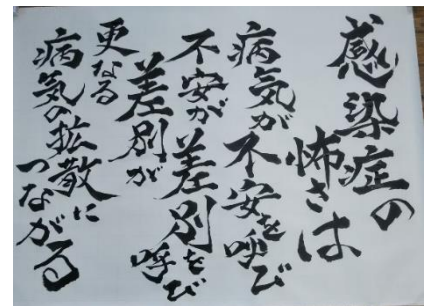 感染症の
怖さは
病気が不安を呼び
不安が差別を呼び
差別が
更なる
病気の拡散に
つながる